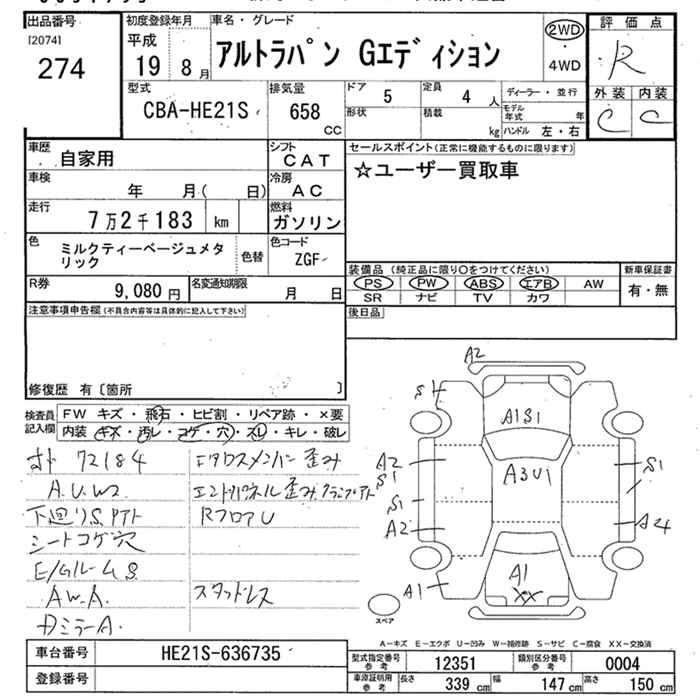 出品番号
[2074]
274
初度登録年月
平成
19 8月
車名・グレード
アルトラパン Gエディション
2WD
・
4WD
評価点
R
外装 内装
C C
型式
CBA-HE21S
排気量
658
CC
ドア
5
定員
4 人
形状
積載
kg
ディーラー・並行
モデル年式 年
ハンドル 左・右
車歴
自家用
シフト
CAT
車検
年 月( 日)
冷房
AC
走行
7万2千183 km
燃料
ガソリン
色
ミルクティーベージュメタリック
色替
色コード
ZGF
R券
9,080円
名変通知期限
月 日
セールスポイント(正常に機能するものに限ります)
☆ユーザー買取車
装備品 (純正品に限り○をつけてください)
PS PW ABS エアB AW
SR ナビ TV カワ
新車保証書
有・無
後日品
注意事項申告欄(不具合内容等は具体的に記入して下さい)
修復歴 有〔箇所 〕
検査員
記入欄
FW キズ・飛石・ヒビ割・リペア跡・×要
内装 キズ・汚レ・コゲ・穴・スレ・キレ・破レ
72184
A.U.W2
下廻りS.アト
シートコゲ穴
E/GルームS.
AW.A.
ミラーA.
クロスメンバー歪み
エンドパネル歪みクランプアト
RフロアU
スタッドレス
A2
S
A1S1
A2
S1
A3U1
S1
S1
A2
A24
A1
A1
XX
スペア
A-キズ E-エクボ U-凹み W-補修跡 S-サビ C-腐食 XX-交換済
車台番号
HE21S-636735
登録番号
型式指定番号
参考
12351
類別区分番号
参考
0004
車庫証明用
参考
長さ 339 cm 幅 147 cm 高さ 150 cm